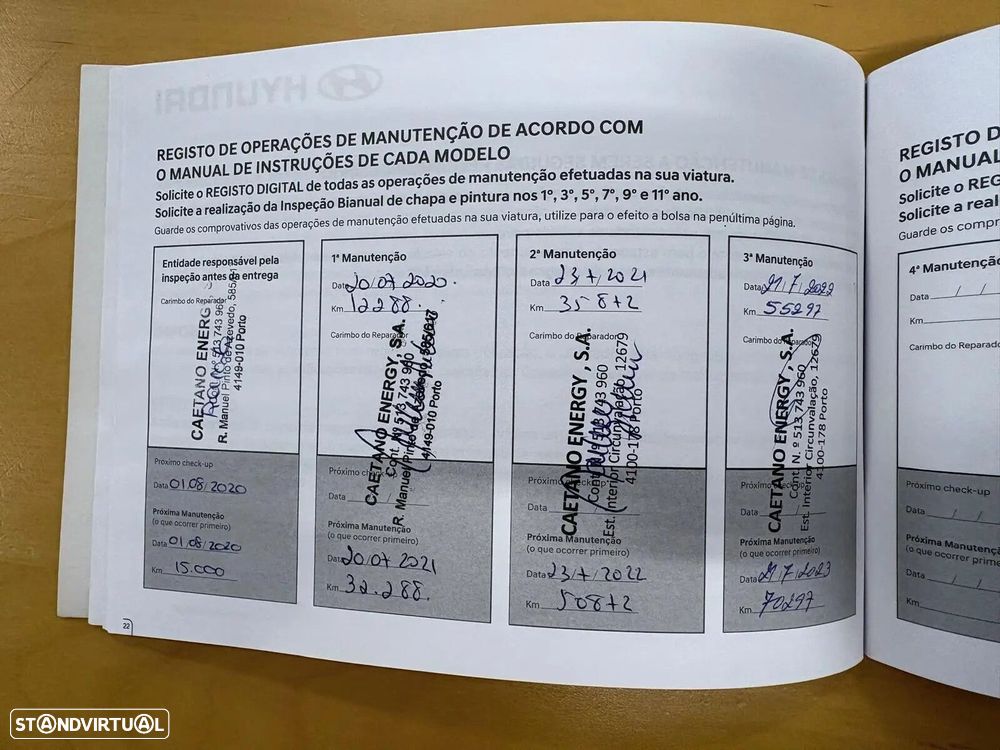 HYUNDAI
REGISTO DE OPERAÇÕES DE MANUTENÇÃO DE ACORDO COM
O MANUAL DE INSTRUÇÕES DE CADA MODELO
Solicite o REGISTO DIGITAL de todas as operações de manutenção efetuadas na sua viatura.
Solicite a realização da Inspeção Bianual de chapa e pintura nos 1º, 3º, 5º, 7º, 9º e 11º ano.
Guarde os comprovativos das operações de manutenção efetuadas na sua viatura, utilize para o efeito a bolsa na penúltima página.
Entidade responsável pela
inspeção antes da entrega
Carimbo do Reparador
CAETANO ENERG
513 743 960
R. Manuel Pinto de Azevedo, 585/91
4149-010 Porto
Próximo check-up
Data 01/08/2020
Próxima Manutenção
(o que ocorrer primeiro)
Data 01/08/2020
Km 15.000
1ª Manutenção
Data 20/07/2020.
Km 12288.
Carimbo do Reparador
CAETANO ENERGY, S.A.
Cont. Nº 513 743 960
R. Manuel Pinto de
4149-010 Porto
Próximo check-up
Data / /
Próxima Manutenção
(o que ocorrer primeiro)
Data 20/07 2021
Km 32.288.
2ª Manutenção
Data 23/7/2021
Km 35872
Carimbo do Reparador
CAETANO ENERGY, S.A.
Cont. Nº 513 743 960
Est. Interior Circunvalação, 12679
4100-178 Porto
Próximo check-up
Data / /
Próxima Manutenção
(o que ocorrer primeiro)
Data 23/7/2022
Km 50872
3ª Manutenção
Data 21/7/2022
Km 55297
Carimbo do Reparador
CAETANO ENERGY, S.A.
Cont. N. º 513 743 960
Est. Interior Circunvalação, 12679
4100-178 Porto
Próximo check-up
Data / /
Próxima Manutenção
(o que ocorrer primeiro)
Data 21/7/2023
Km 70297
22
REGISTO D
O MANUAL
Solicite o REG
Solicite a real
Guarde os compr
4ª Manutenção
Data / /
Km
Carimbo do Reparador
Próximo check-up
Data / /
Próxima Manutenç
(o que ocorrer prime
Data /
Km
STANDVIRTUAL